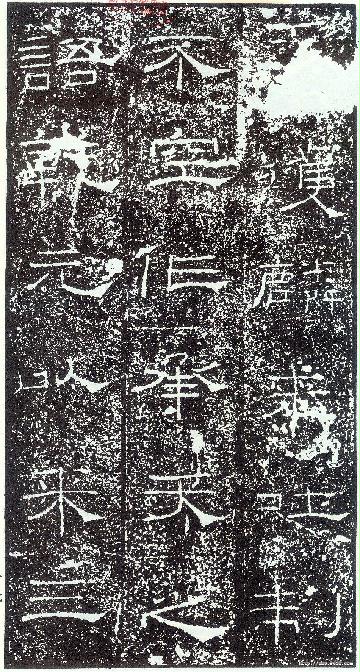 獲麟來吐制
不空作承天之
語乾元以來三